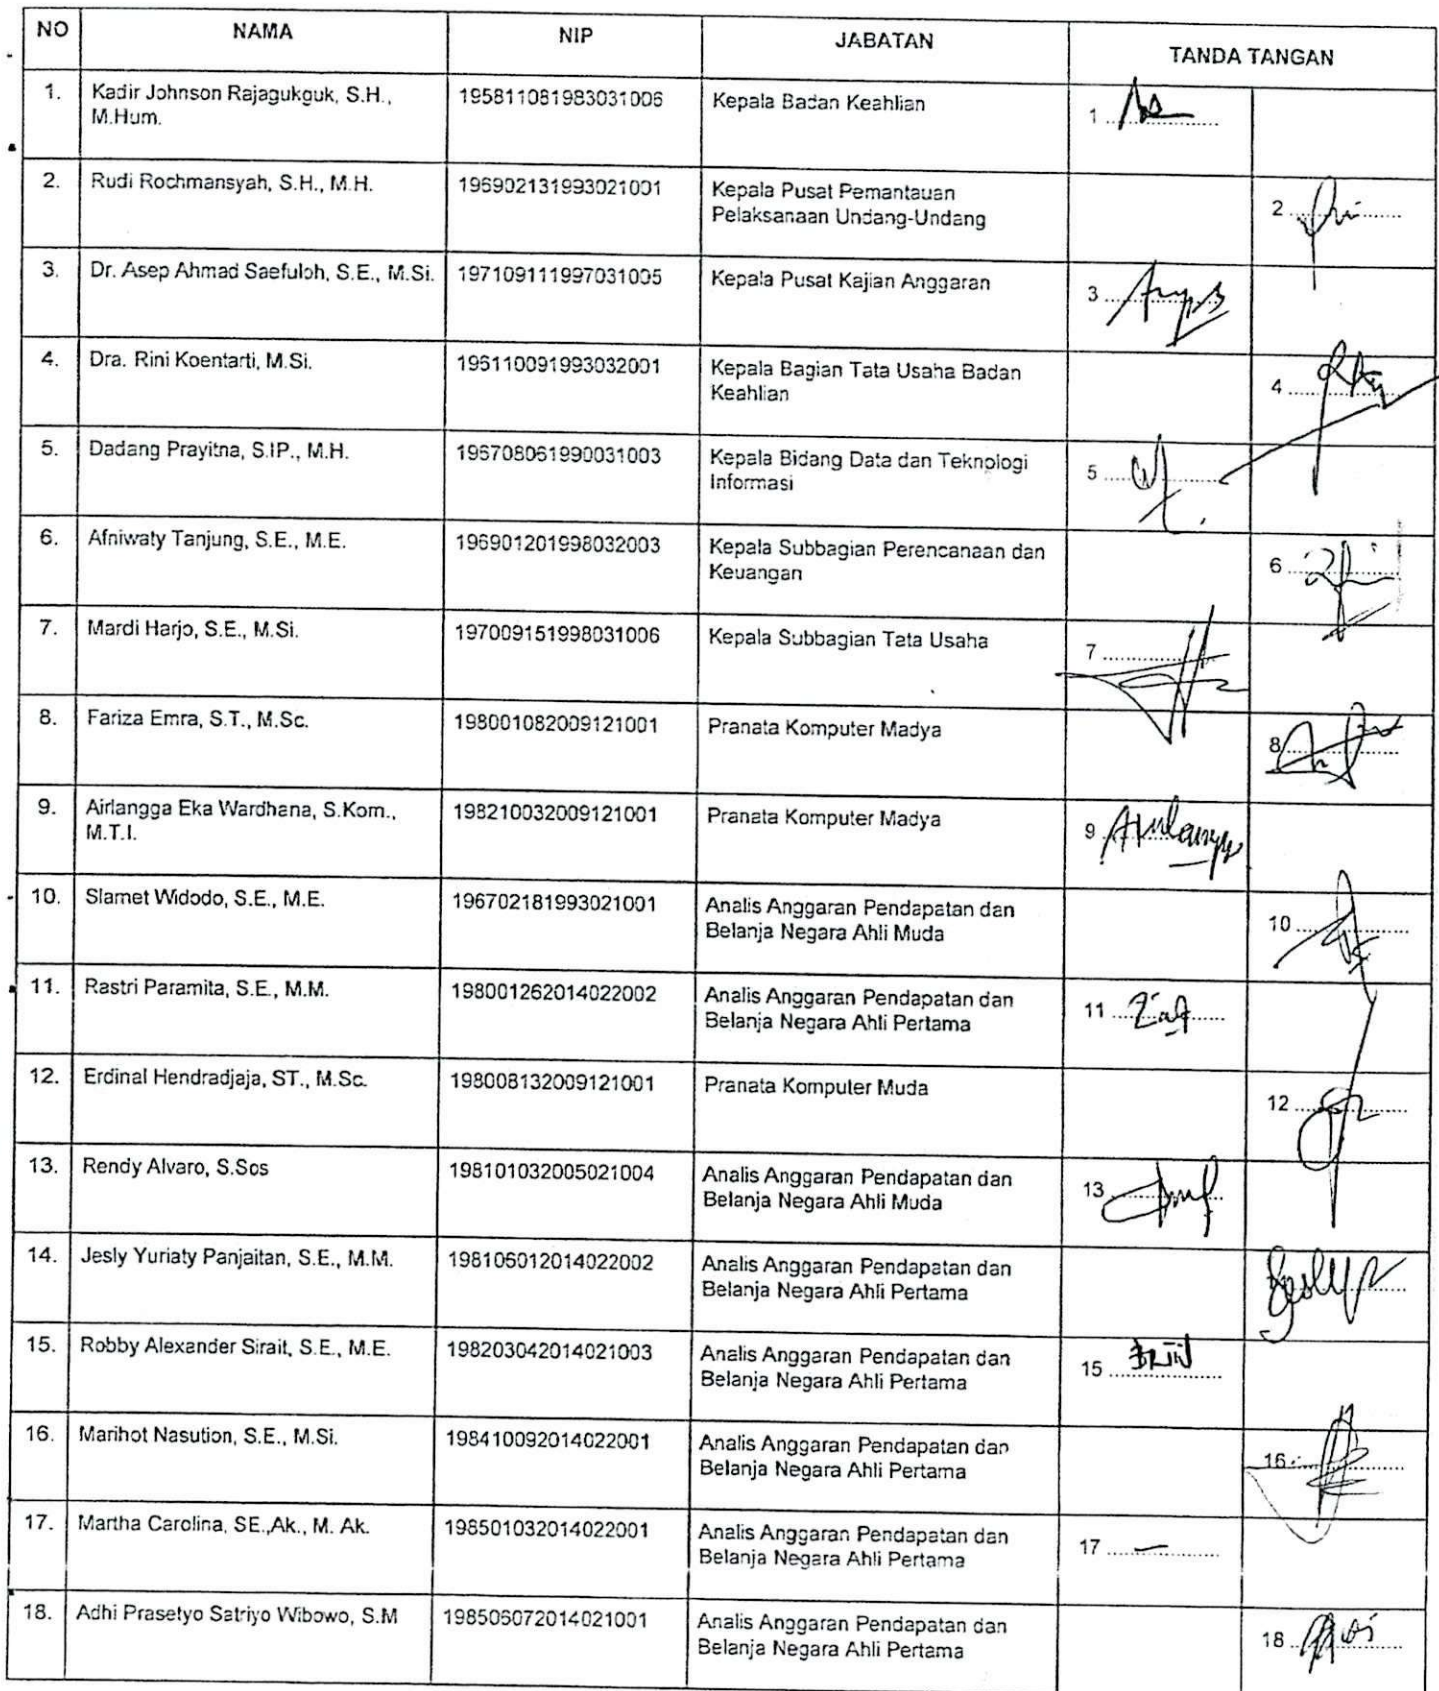 NO NAMA NIP JABATAN TANDA TANGAN
1. Kadir Johnson Rajagukguk, S.H., 195811081983031006 Kepala Badan Keahlian 1
M.Hum.
2. Rudi Rochmansyah, S.H., M.H. 196902131993021001 Kepala Pusat Pemantauan 2
Pelaksanaan Undang-Undang
3. Dr. Asep Ahmad Saefuloh, S.E., M.Si. 197109111997031005 Kepala Pusat Kajian Anggaran 3
4. Dra. Rini Koentarti, M.Si. 196110091993032001 Kepala Bagian Tata Usaha Badan 4
Keahlian
5. Dadang Prayitna, S.IP., M.H. 196708061990031003 Kepala Bidang Data dan Teknologi 5
Informasi
6. Afniwaty Tanjung, S.E., M.E. 196901201998032003 Kepala Subbagian Perencanaan dan 6
Keuangan
7. Mardi Harjo, S.E., M.Si. 197009151998031006 Kepala Subbagian Tata Usaha 7
8. Fariza Emra, S.T., M.Sc. 198001082009121001 Pranata Komputer Madya 8
9. Airlangga Eka Wardhana, S.Kom., 198210032009121001 Pranata Komputer Madya 9
M.T.I.
10. Slamet Widodo, S.E., M.E. 196702181993021001 Analis Anggaran Pendapatan dan 10
Belanja Negara Ahli Muda
11. Rastri Paramita, S.E., M.M. 198001262014022002 Analis Anggaran Pendapatan dan 11
Belanja Negara Ahli Pertama
12. Erdinal Hendradjaja, ST., M.Sc. 198008132009121001 Pranata Komputer Muda 12
13. Rendy Alvaro, S.Sos 198101032005021004 Analis Anggaran Pendapatan dan 13
Belanja Negara Ahli Muda
14. Jesly Yuriaty Panjaitan, S.E., M.M. 198106012014022002 Analis Anggaran Pendapatan dan
Belanja Negara Ahli Pertama
15. Robby Alexander Sirait, S.E., M.E. 198203042014021003 Analis Anggaran Pendapatan dan 15
Belanja Negara Ahli Pertama
16. Marihot Nasution, S.E., M.Si. 198410092014022001 Analis Anggaran Pendapatan dan 16
Belanja Negara Ahli Pertama
17. Martha Carolina, SE.,Ak., M. Ak. 198501032014022001 Analis Anggaran Pendapatan dan 17
Belanja Negara Ahli Pertama
18. Adhi Prasetyo Satriyo Wibowo, S.M 198506072014021001 Analis Anggaran Pendapatan dan 18
Belanja Negara Ahli Pertama